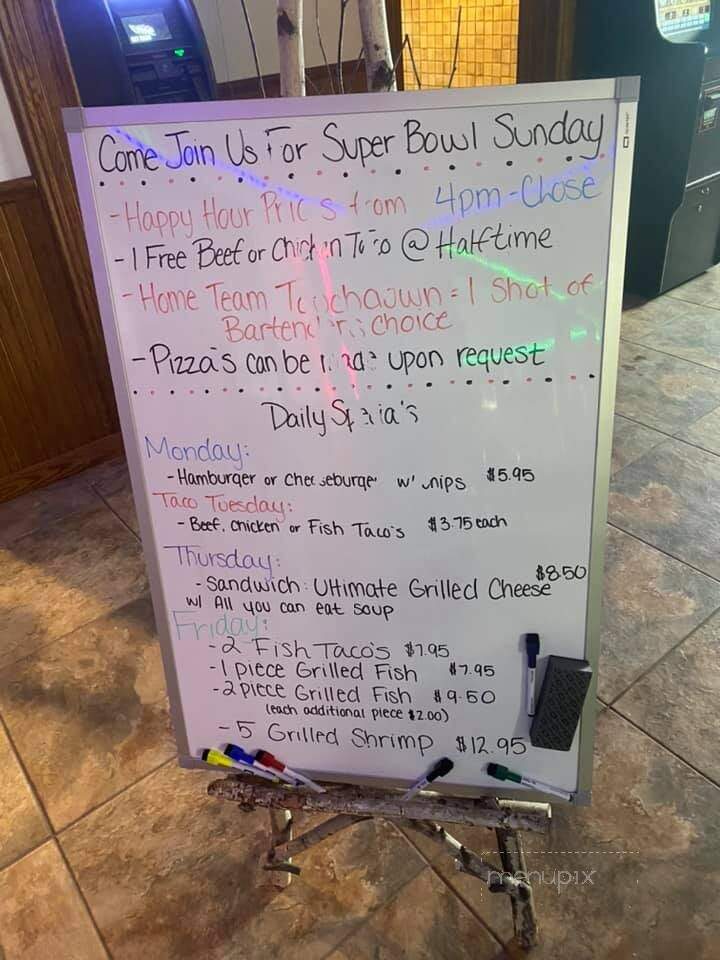 Come Join Us For Super Bowl Sunday
- Happy Hour Prices from 4pm - Chose
- 1 Free Beef or Chicken Taco @ Halftime
- Home Team Touchdown = 1 Shot of
Bartenders choice
- Pizza's can be made upon request
Daily Special's
Monday:
- Hamburger or Cheeseburger w/ chips $5.95
Taco Tuesday:
- Beef, Chicken or Fish Taco's $3.75 each
Thursday:
$8.50
- Sandwich: Ultimate Grilled Cheese
w/ All you can eat soup
Friday:
- 2 Fish Taco's $7.95
- 1 piece Grilled Fish $7.95
- 2 piece Grilled Fish $9.50
(each additional piece $2.00)
- 5 Grilled Shrimp $12.95
menupix